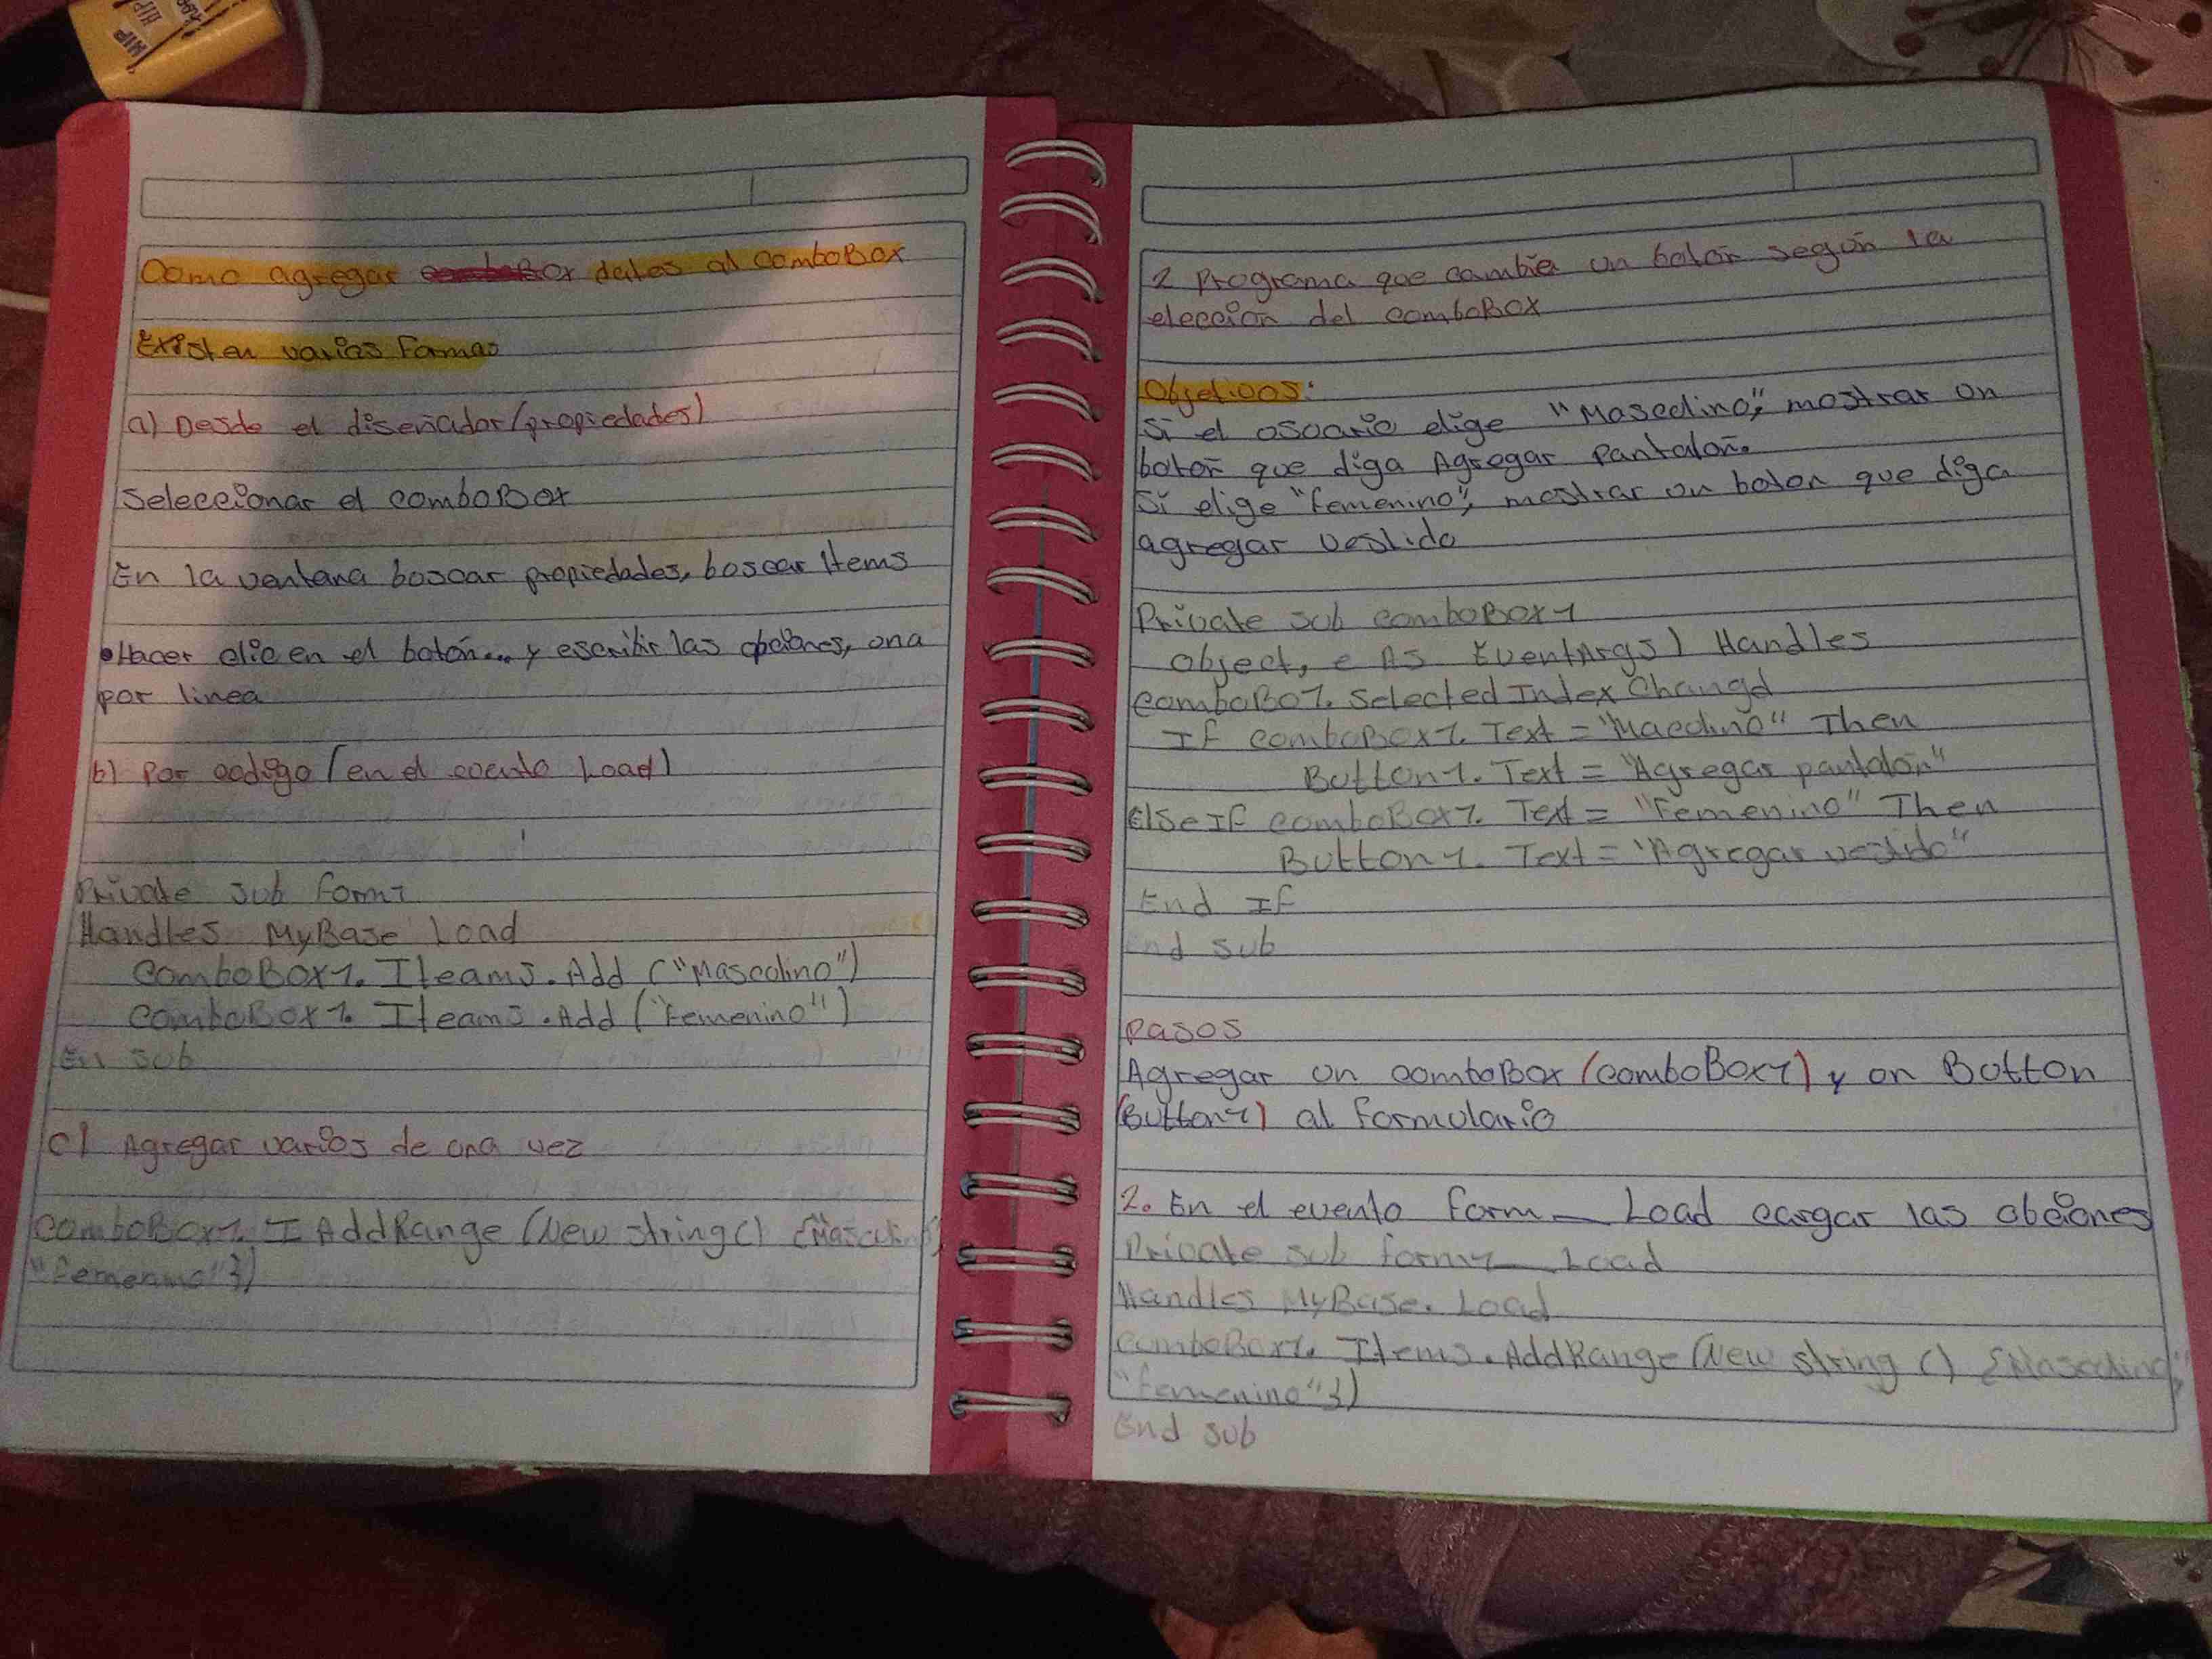 Como agregar comboBox dates al comboBox
Existen varias formas
a) Desde el diseñador (propiedades)
Seleccionar el comboBox
En la ventana boscar propiedades, boscar Items
•Hacer clic en el botón... y escribir las obciones, ona
por linea
b) Por codigo (en el evento Load)
Private sub form1
Handles MyBase Load
ComboBox1. Iteams.Add ("Mascolino")
ComboBox1. Iteams.Add ("Femenino")
En sub
c) Agregar varios de ona vez
ComboBox1. I AddRange (New string() {"Mascolino",
"femenino"})
2 Programa que cambie un boton según la
eleccion del comboBox
Objetivos:
Si el osuario elige "Mascolino", mostrar un
botón que diga Agregar Pantalón.
Si elige "femenino", mostrar un boton que diga
agregar vestido
Private sub comboBox1
object, e As EventArgs) Handles
comboBo1. Selected Index Changd
If comboBox1. Text = "Macolino" Then
Button1. Text = "Agregar pantalón"
ElseIf comboBox1. Text = "Femenino" Then
Button1. Text = "Agregar vestido"
End If
End sub
Pasos
Agregar un comboBox (comboBox1) y on Botton
(Button1) al formulario
2. En el evento form_Load cargar las obciones
Private sub form1_Load
Handles MyBase. Load
comboBox1. Items.AddRange (New string () {"Mascolino",
"femenino"})
End sub